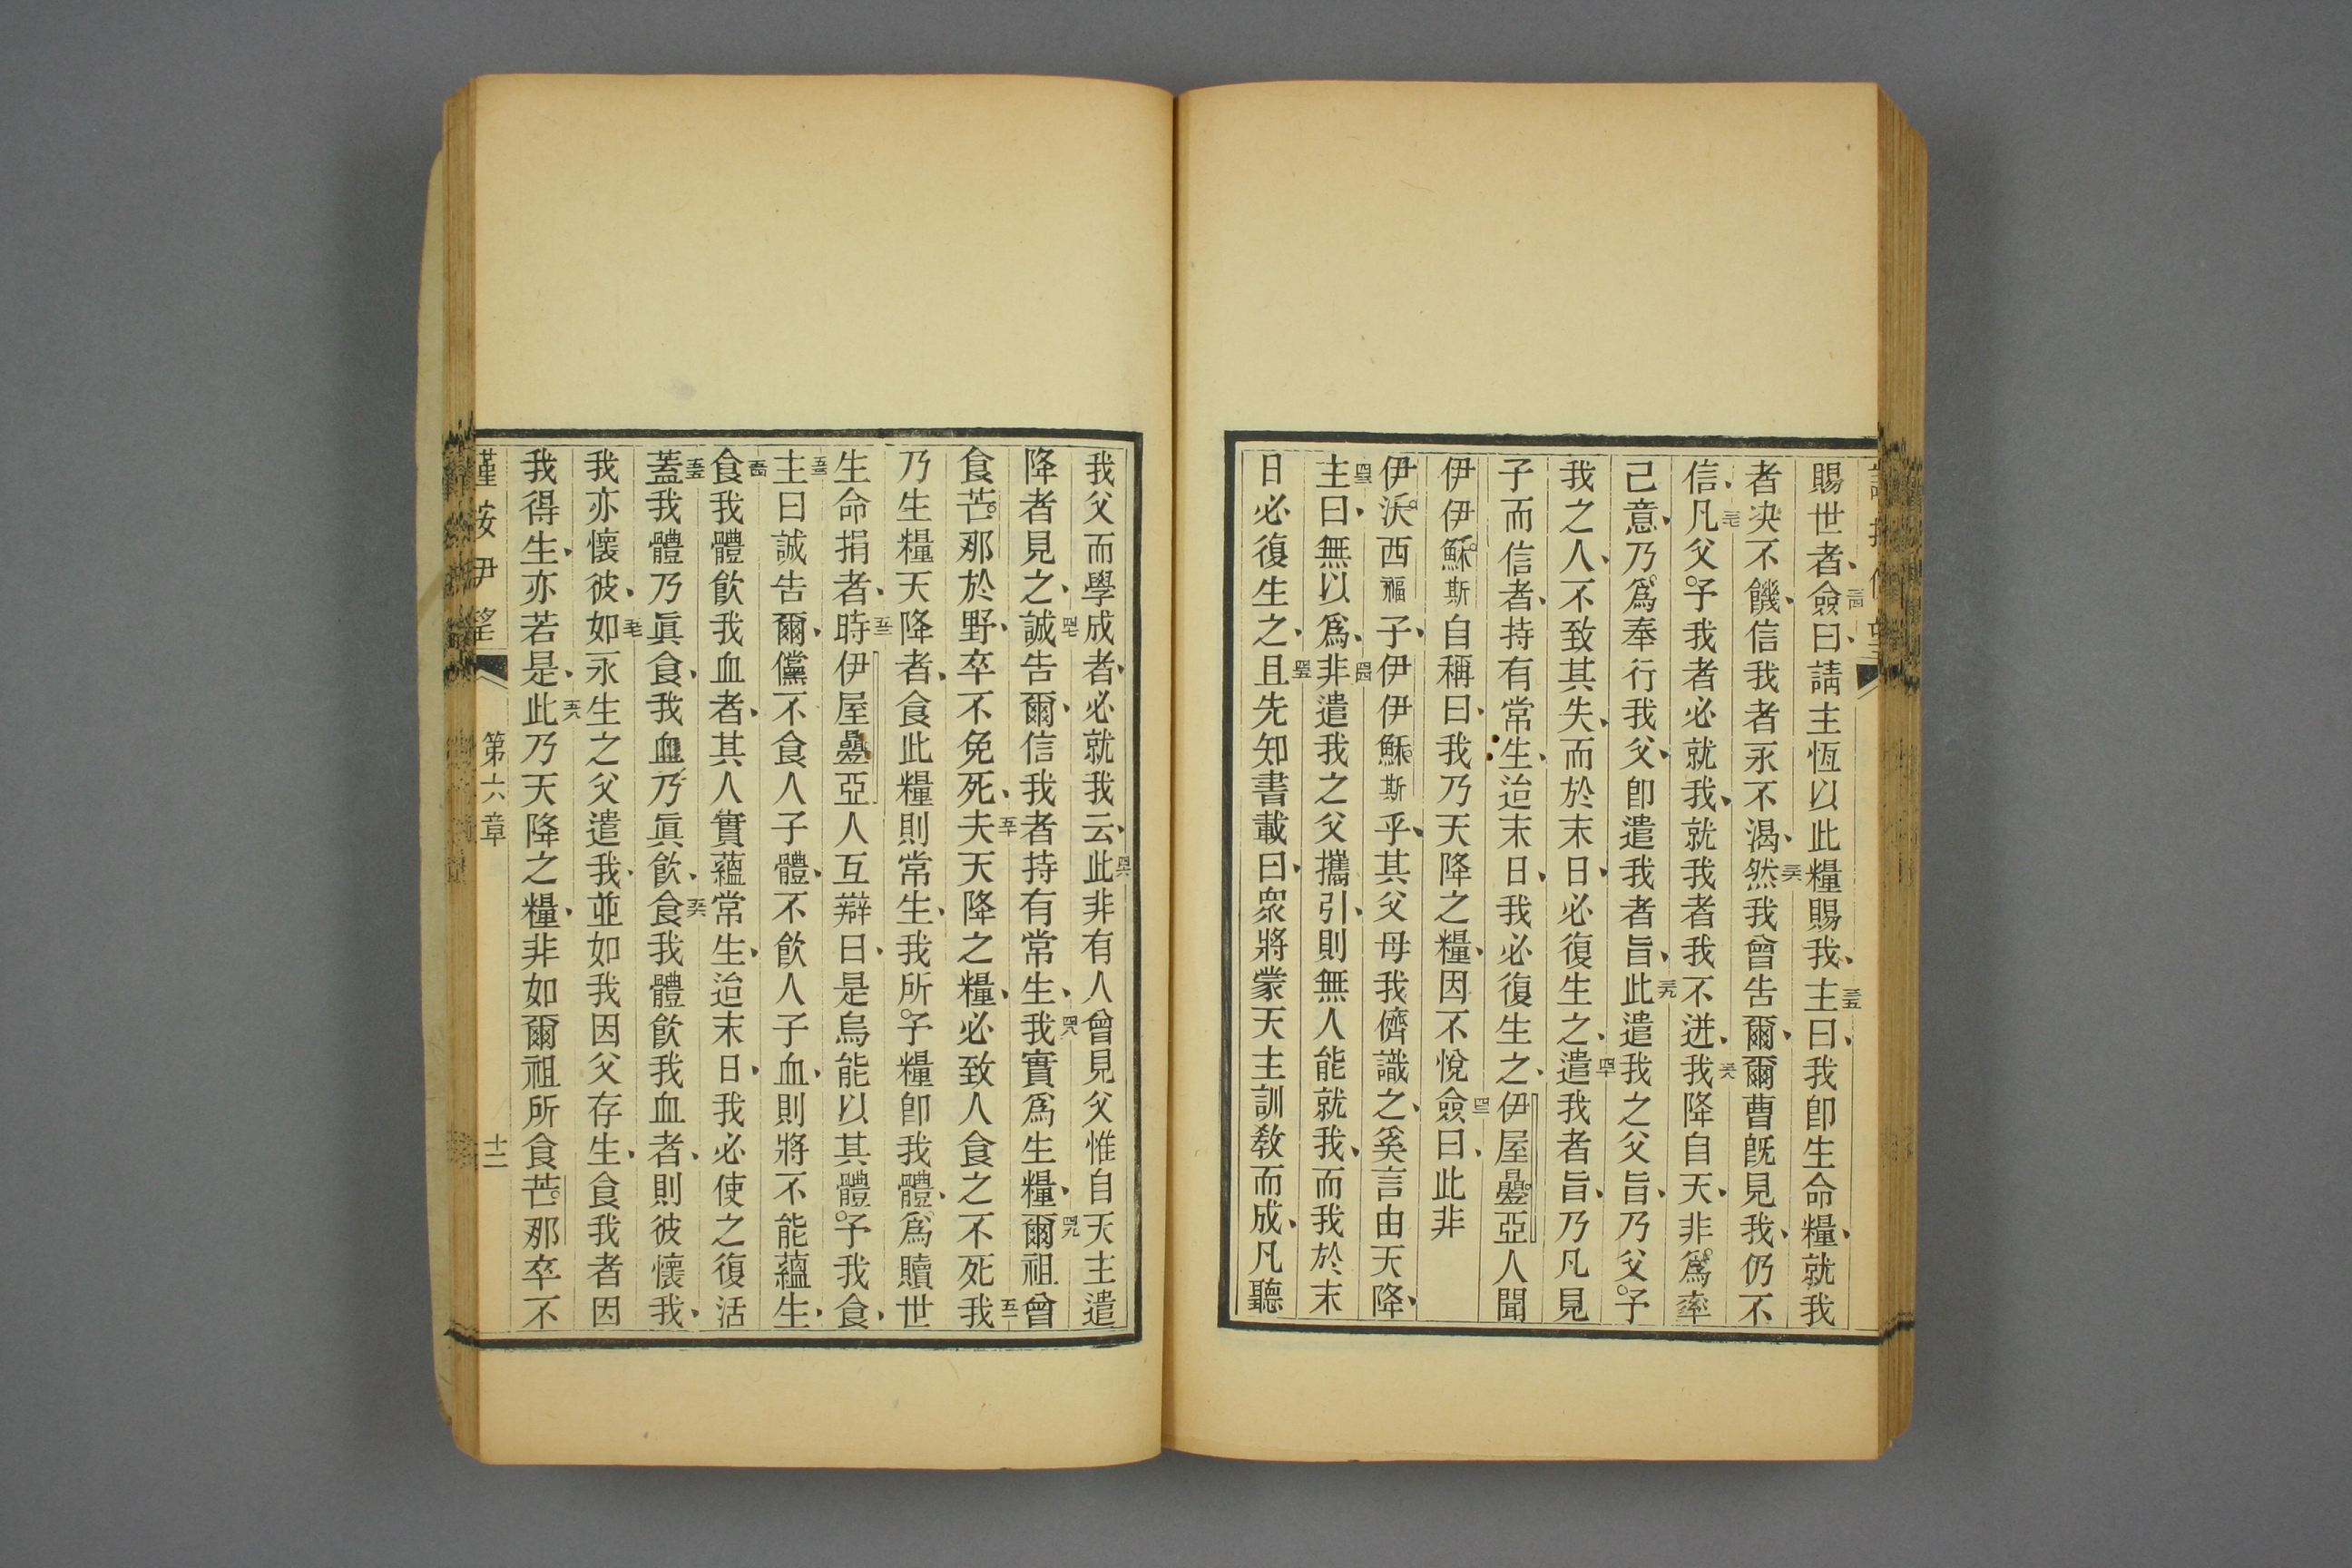 賜世者、三四僉曰、請主恆以此糧賜我、三五主曰、我卽生命糧、就我
者决不饑、信我者永不渴、三六然我曾告爾、爾曹旣見我、仍不
信、三七凡父予我者必就我、就我者我不迸、三八我降自天、非爲率
己意、乃爲奉行我父、卽遣我者旨、三九此遣我之父旨、乃父予
我之人、不致其失、而於末日、必復生之、四十遣我者旨、乃凡見
子而信者、持有常生、迨末日、我必復生之、伊屋疊亞人聞
伊伊穌斯自稱曰、我乃天降之糧、因不悅、四二僉曰、此非
伊沃西福子、伊伊穌斯乎、其父母我儕識之、奚言由天降、
四三主曰、無以爲、四四非遣我之父攜引、則無人能就我、而我於末
日必復生之、四五且先知書載曰、衆將蒙天主訓敎而成、凡聽
我父而學成者、必就我、云、四六此非有人曾見父惟自天主遣
降者見之、四七誠告爾、信我者持有常生、四八我實爲生糧、四九爾祖曾
食芒那於野、卒不免死、五十夫天降之糧、必致人食之不死、五一我
乃生糧天降者、食此糧則常生、我所予糧卽我體、爲贖世
生命捐者、五二時伊屋疊亞人互辯曰、是烏能以其體予我食、
五三主曰誠告爾、儻不食人子體、不飮人子血、則將不能蘊生、
五四食我體飮我血者、其人實蘊常生、迨末日、我必使之復活
五五蓋我體乃眞食、我血乃眞飮、五六食我體飮我血者、則彼懷我、
我亦懷彼、五七如永生之父遣我、並如我因父存生、食我者因
我得生、亦若是、五八此乃天降之糧、非如爾祖所食芒那卒不
第六章
十二